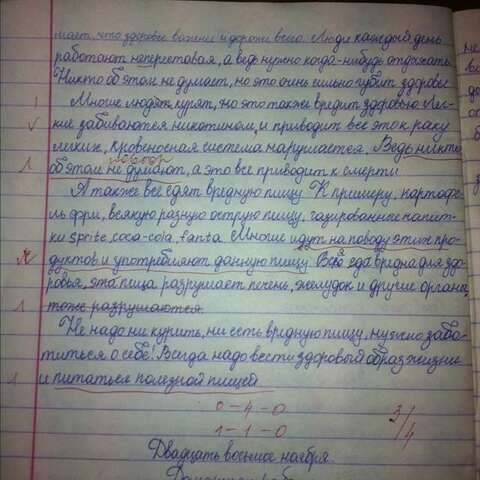 мает, что здоровье важнее и дороже всего. Люди каждый день
работают неперестовая, а ведь нужно когда-нибудь отдыхать.
Никто об этом не думает, но это очень сильно губит здоровье
Многие людят курят, но это также вредит здоровью. Лёг-
кие забиваются никотином, и приводит всё это к раку
легких, кровеносная система нарушается. Ведь никто
об этом не думают, а это все приводит к смерти.
А также все едят вредную пищу. К примеру, картофе-
ль фри, всякую разную острую пищу, газированные напит-
ки sprite, coca-cola, fanta. Многие идут на поводу этих про-
дуктов и употребляют данную пищу. Вся еда вредна для здо-
ровья, эта пища разрушает печень, желудок и другие органы,
тоже разрушаются.
Не надо ни курить, ни есть вредную пищу, нужно забо-
титься о себе! Всегда надо вести здоровый образ жизни
и питаться полезной пищей
0-4-0
1-1-0
3/4
Двадцать восьмое ноября.